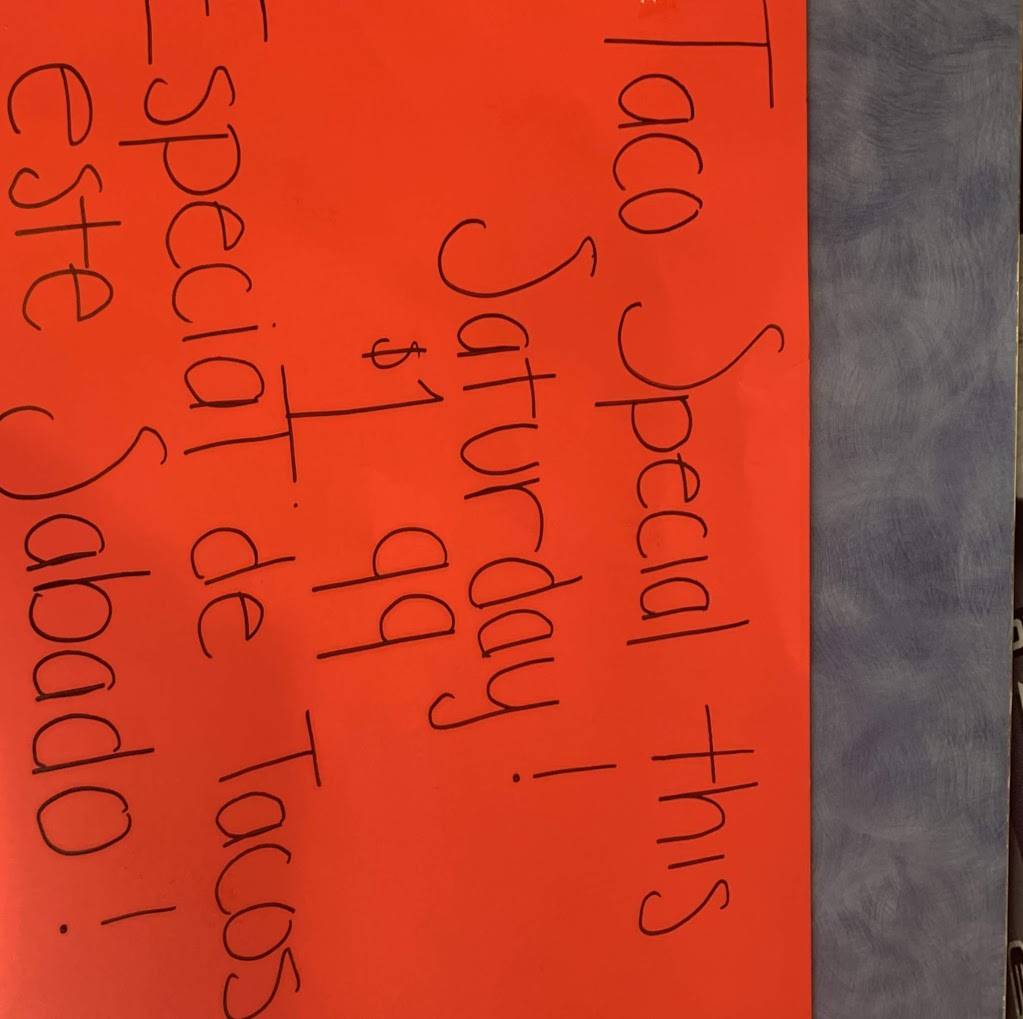 Taco Special this
Saturday!
$1.99
Especial de Tacos
este Sabado!